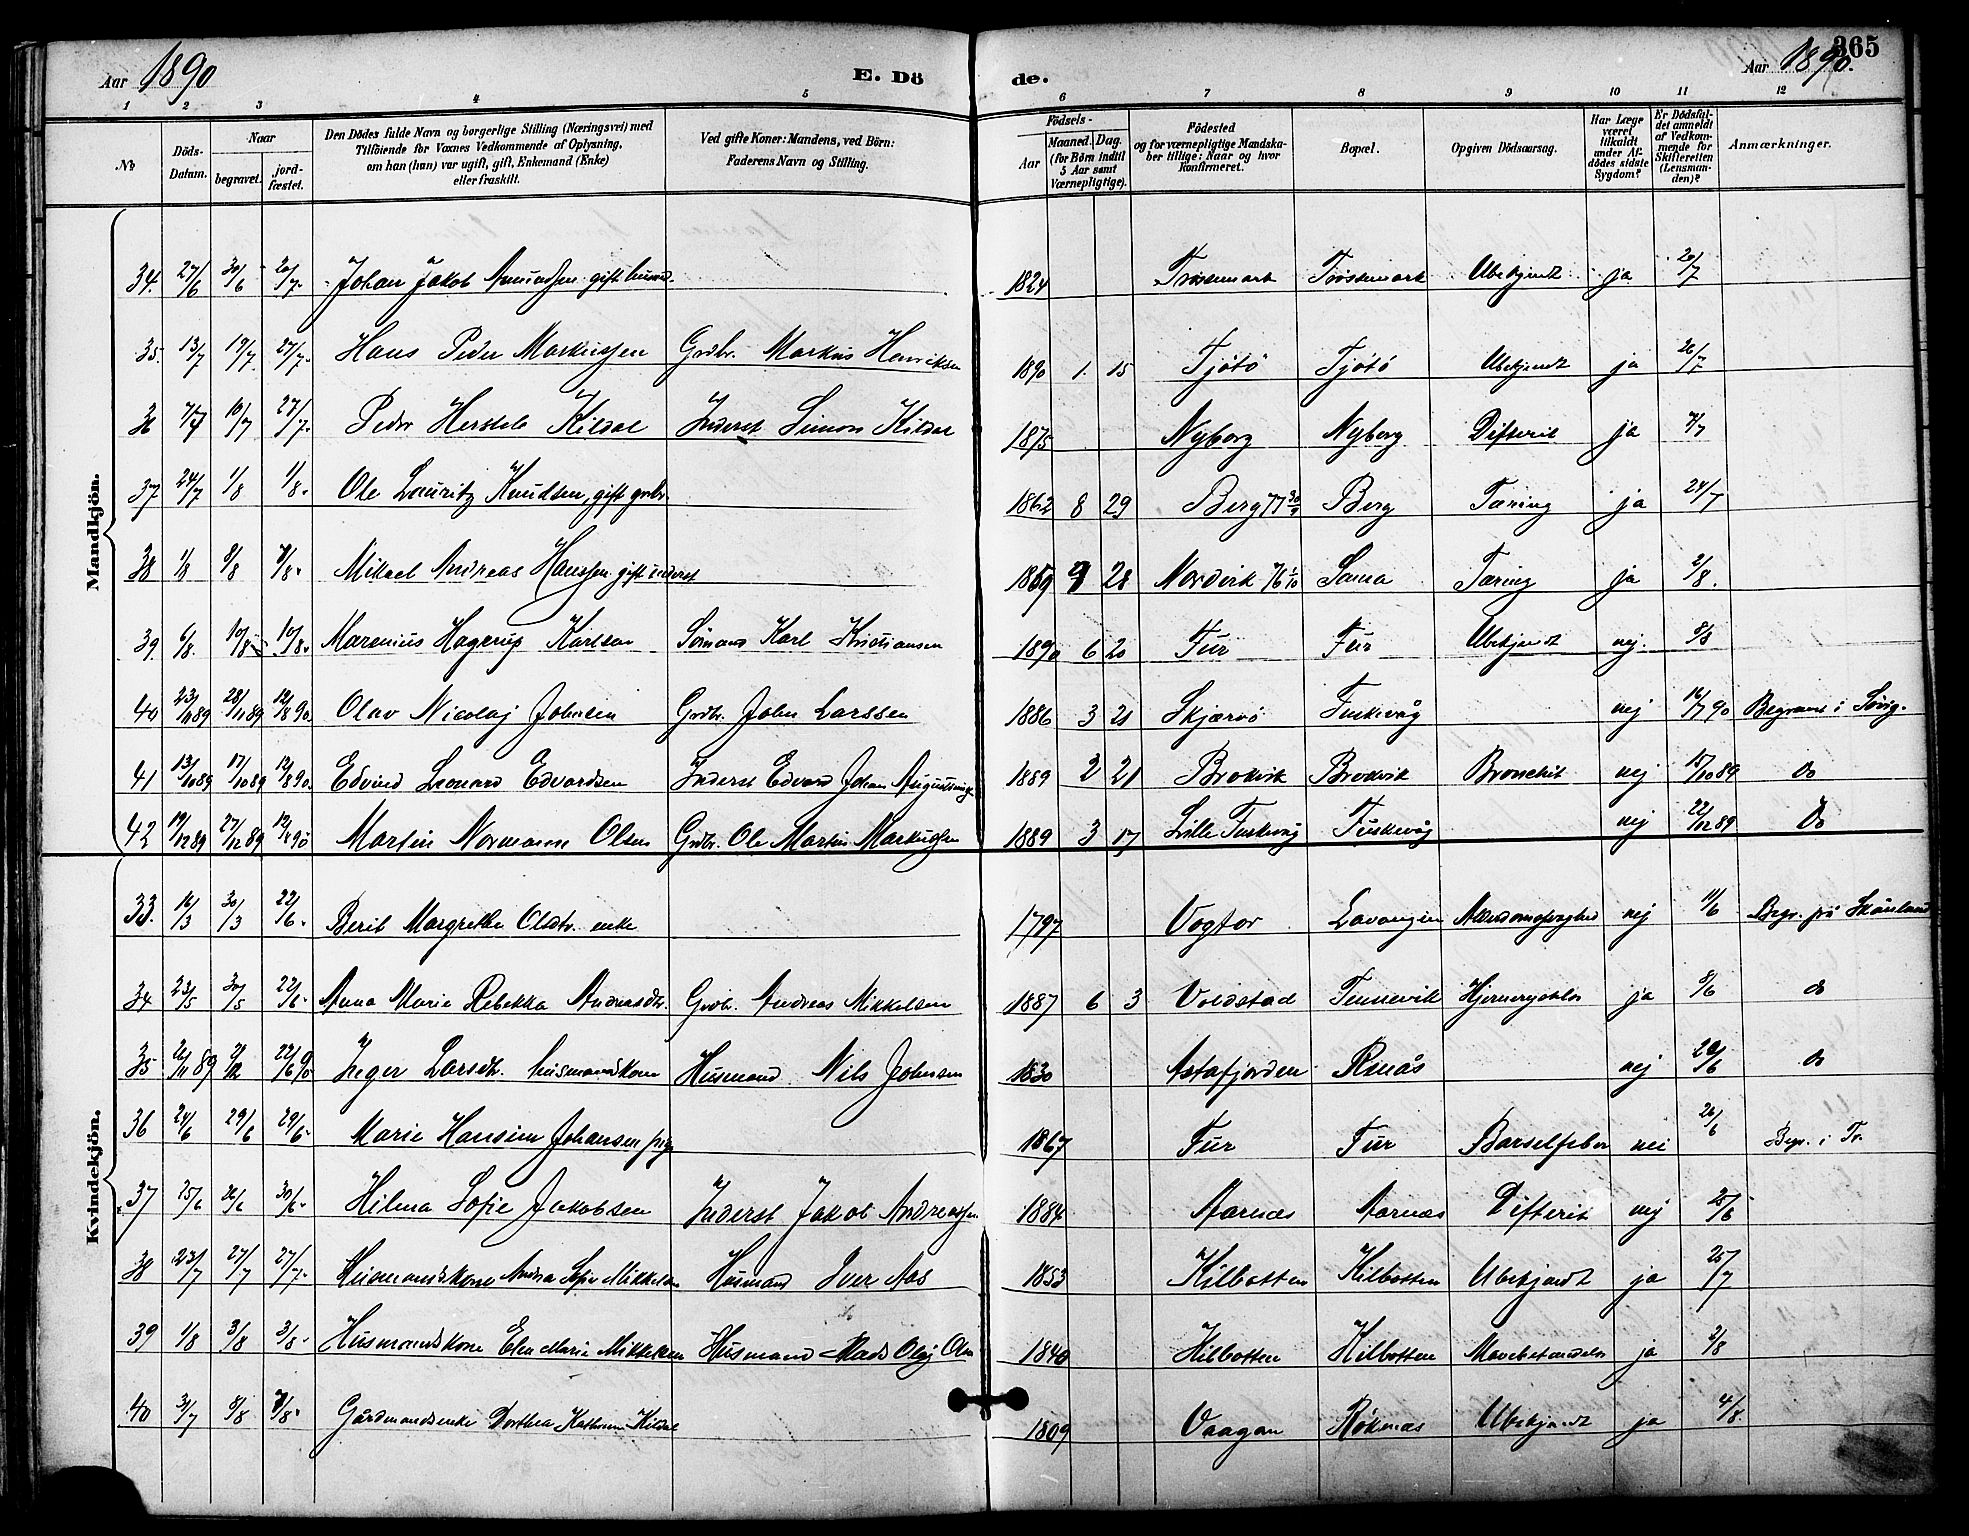 365
Aar 1890 E. Döde. Aar 1890.
1 2 3 4 5 6 7 8 9 10 11 12
No
Döds-Datum.
Naar begravet. jordfæstet.
Den Dödes fulde Navn og borgerlige Stilling (Næringsvei) med Tilföiende for Voxnes Vedkommende af Oplysning, om han (hun) var ugift, gift, Enkemand (Enke) eller fraskilt.
Ved gifte Koner: Mandens, ved Börn: Faderens Navn og Stilling.
Födsels- Aar Maaned. Dag. (for Börn indtil 5 Aar samt Værnepligtige).
Födested og for værnepligtige Mandskaber tillige: Naar og hvor Konfirmeret.
Bopæl.
Opgiven Dödsaarsag.
Har Læge været tilkaldt under Afdödes sidste Sygdom?
Er Dödsfaldet anmeldt af Vedkommende for Skifteretten (Lensmanden)?
Anmærkninger.
Mandkjön.
34. 27/6 30/6 20/7. Johan Jakob Amundsen gift husmd. 1824 Trøssemark Trøssemark Ubekjendt ja 20/7
35. 13/7 19/7. 27/7. Hans Peder Markussen Grdbr. Markus Henriksen 1890 1. 15 Tjøtø Tjøtø Ubekjendt ja 26/7
36 7/7 10/7 27/7. Peder Hersleb Kildal Inderst Simon Kildal 1875 Nyborg Nyborg Difterit ja 9/7
37 24/7 1/8 1/8. Ole Lauritz Knudsen, gift grdbr. 1862 8 29 Berg 77 30/9 Berg Tæring ja 24/7
38 1/8 8/8 9/8. Mikael Andreas Hanssen gift inderst 1859 9 28 Nordvik 76 1/10 Sama Tæring ja 2/8.
39 6/8. 10/8 10/8. Marenius Hagerup Karlsen Sømand Karl Kristiansen 1890 6 20 Fur Fur Ubekjendt nej. 8/8
40 23/11 89 28/11 89 12/8 90. Olav Nicolaj Johnsen Grdbr. John Larssen 1886 3 21 Skjærvø Fuskevåg nej 16/7 90 Begravet i Sørvig.
41 13/10 89 17/10 89 12/8 90. Edvind Leonard Edvardsen Inderst Edvard Johan Augustinus 1889 2 21 Brokvik Brokvik Bronchit nej 15/10 89 do
42 19/12 89 27/12 89 12/8 90 Martin Normann Olsen Grdbr. Ole Martin Markussen 1889 3 17 Lille Fuskevåg Fuskevåg nej 22/12 89 Do
Kvindekjön.
33. 16/3 30/3 22/6. Berit Margrethe Olsdtr. enke 1797 Vogtor Lavangen Alderdomssvaghed nej 11/6 Begr. på Skånland
34 23/5 30/5 22/6. Anna Marie Rebekka Andreasdtr. Grdbr. Andreas Mikkelsen 1887 6 3 Voldstad Tennevik Hjernerystelse ja 8/6 do
35 26/11 89 2/12 22/6 90 Inger Larsdtr. husmandskone Husmand Nils Johnsen 1830 Astafjorden Renås nej 20/6 do
36 24/6 29/6 29/6. Marie Hansine Johansen pige 1867 Fur Fur Barselfeber nei 26/6 Begr. i Tr.
37 25/6 26/6 30/6. Hilma Sofie Jakobsen Inderst Jakob Andreassen 1884 Aarnæs Aarnæs Difterit nej 25/6
38 23/7 27/7 27/7. Husmandskone Andrea Sofie Mikkelsen Husmand Iver Aas 1853 Kilbotten Kilbotten Ubekjendt ja 25/7
39 1/8 3/8 3/8. Husmandskone Elen Marie Mikkelsen Husmand Mads Olaj Olsen 1840 Kilbotten Kilbotten Mavebetændelse ja 2/8
40 31/7 8/8 9/8. Gårdmandsenke Dorthea Kathrine Kildal 1809 Vaagan Røkenæs Ubekjendt ja 4/8.